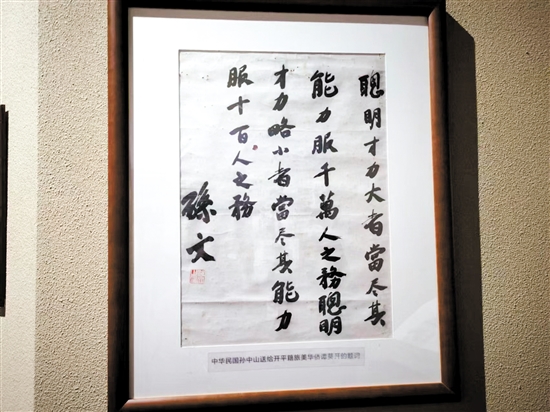 聰明才力大者當尽其
能力服千萬人之務聰明
才力略小者當尽其能力
服十百人之務
孫文
中华民国孙中山送给开平籍旅美华侨